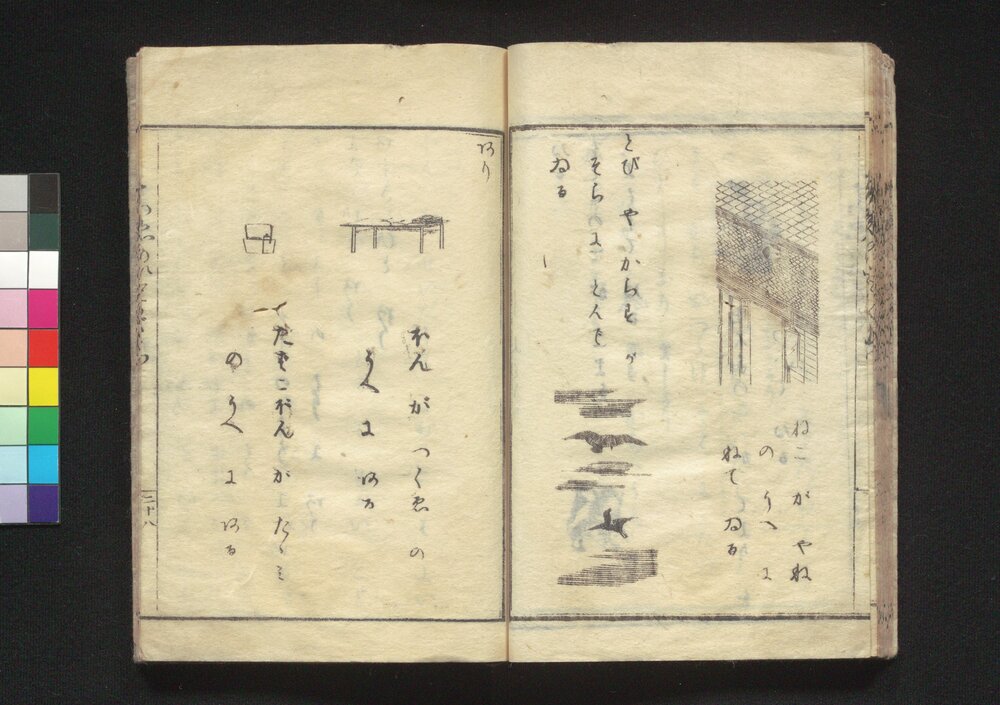 ねこ が やね
の うへ に
ねて ゐる
とび や からす が
そら に とんで
ゐる
あり
ほん が つくゑ の
うへ に ある
たばこぼん が たゝみ
の うへ に ある
三十八